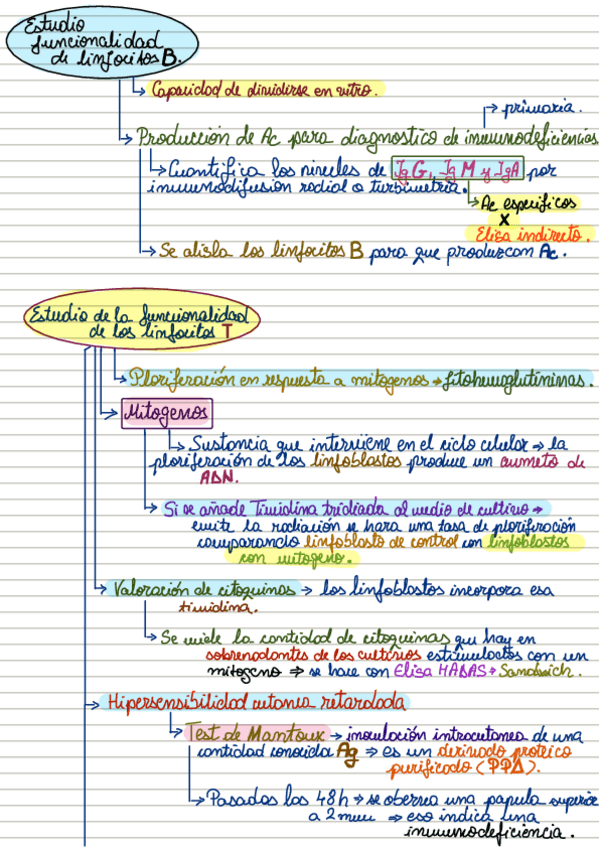 Estudio
funcionalidad
de linfocitos B.
↳ Capacidad de dividirse en vitro.
↱ primaria.
↳ Producción de Ac para diagnostico de inmunodeficiencias
↳ Cuantifica los niveles de IgG, IgM y IgA por
inmunodifusion radial o turbimetria.
↳ Ac especificos
x
Elisa indirecto.
↳ Se aisla los linfocitos B para que produzcan Ac.
Estudio de la funcionalidad
de los linfocitos T
↳ Ploriferación en respuesta a mitogenos → fitohemoglutininas.
↳ Mitogenos
↳ Sustancia que interviene en el ciclo celular ⇒ la
ploriferación de los linfoblastos produce un aumeto de
ADN.
↳ Si se añade Timidina tridiada al medio de cultivo →
emite la radiación se hara una tasa de ploriferación
comparando linfoblasto de control con linfoblastos
con mitogeno.
↳ Valoración de citoquinas → los linfoblastos incorpora esa
timidina.
↳ Se mide la cantidad de citoquinas que hay en
sobrenodantes de los cultivos estimulactos con un
mitogeno ⇒ se hace con Elisa HABAS → Sandwich.
→ Hipersensibilidad cutanea retardada
↳ Test de Mantoux → inoculación introcutanea de una
cantidad conocida Ag ⇒ es un derivado proteico
purificado (PPD).
↳ Pasadas las 48h ⇒ se oberva una papula superior
a 2mm ⇒ eso indica una
inmunodeficiencia.